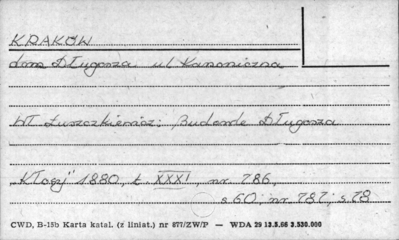 KRAKÓW
dom Długosza ul Kanoniczna
Wł Łuszczkiewicz: Długosza
„Kłosy" 1880, t. XXXI, nr. 786,
s 60; nr. 787; s. 78
CWD, B-15b Karta katal. (z liniat.) nr 877/ZW/P — WDA 29 13.5.66 3.530.000